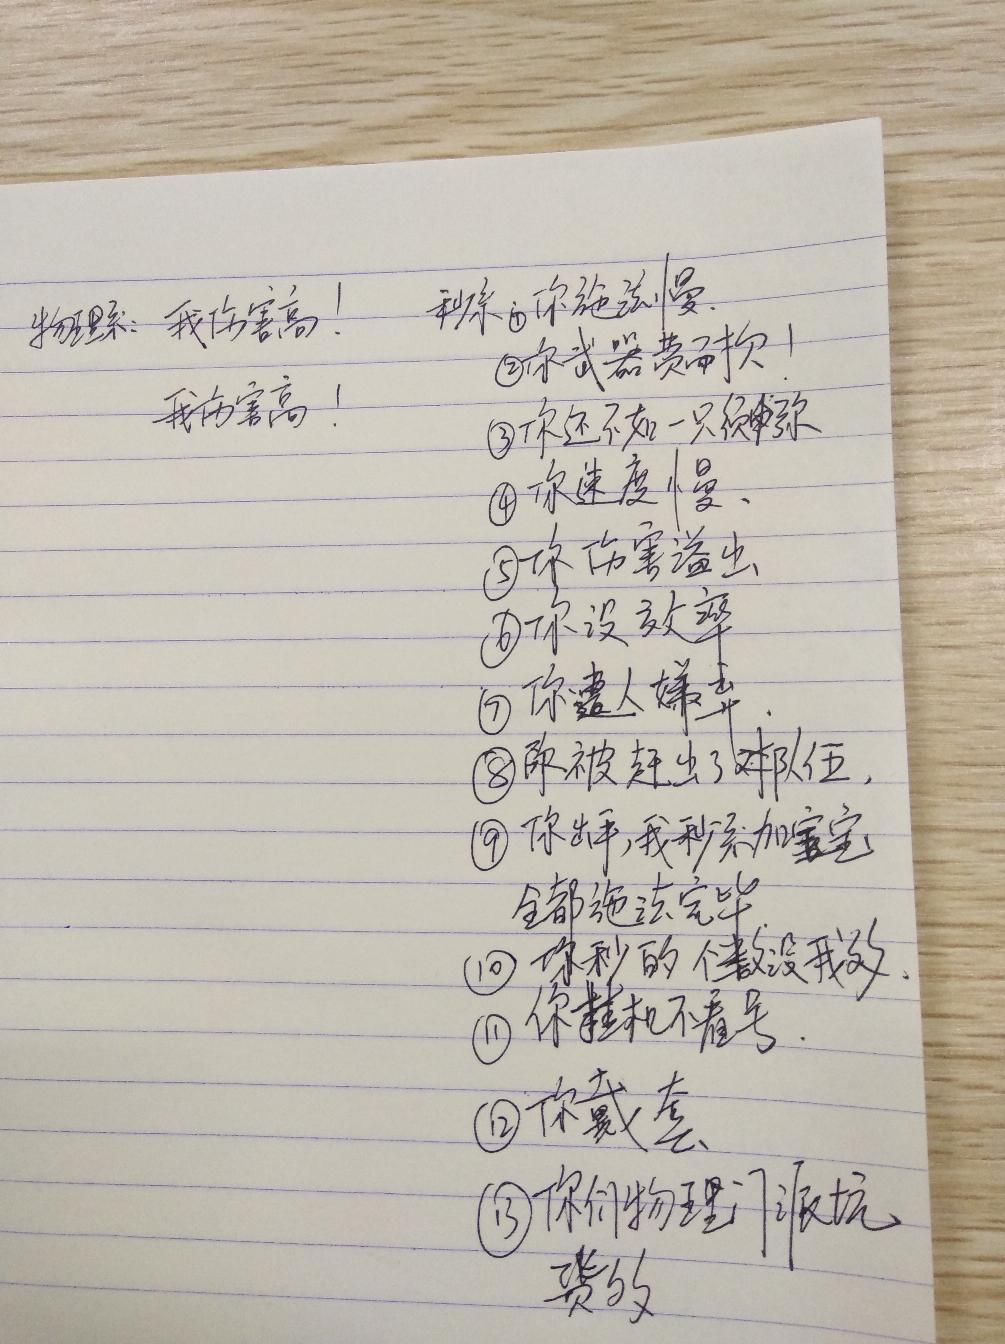 物理系: 我伤害高!
我伤害高!
秒系①你施法慢.
②你武器费耐损!
③你还不如一只须弥
④你速度慢、
⑤你伤害溢出
⑥你没效率
⑦你遭人嫌弃.
⑧你被赶出了队伍,
⑨你出手,我秒系加宝宝
全都施法完毕
⑩你秒的个数没我多.
⑪你挂机不看号.
⑫你戴套
⑬你们物理门派坑
货多